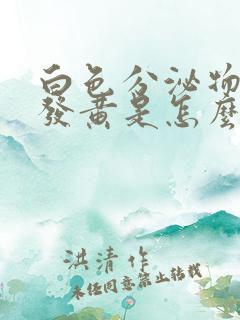 白色分泌物
發黃是怎麼
洪清作
未經同意禁止轉載